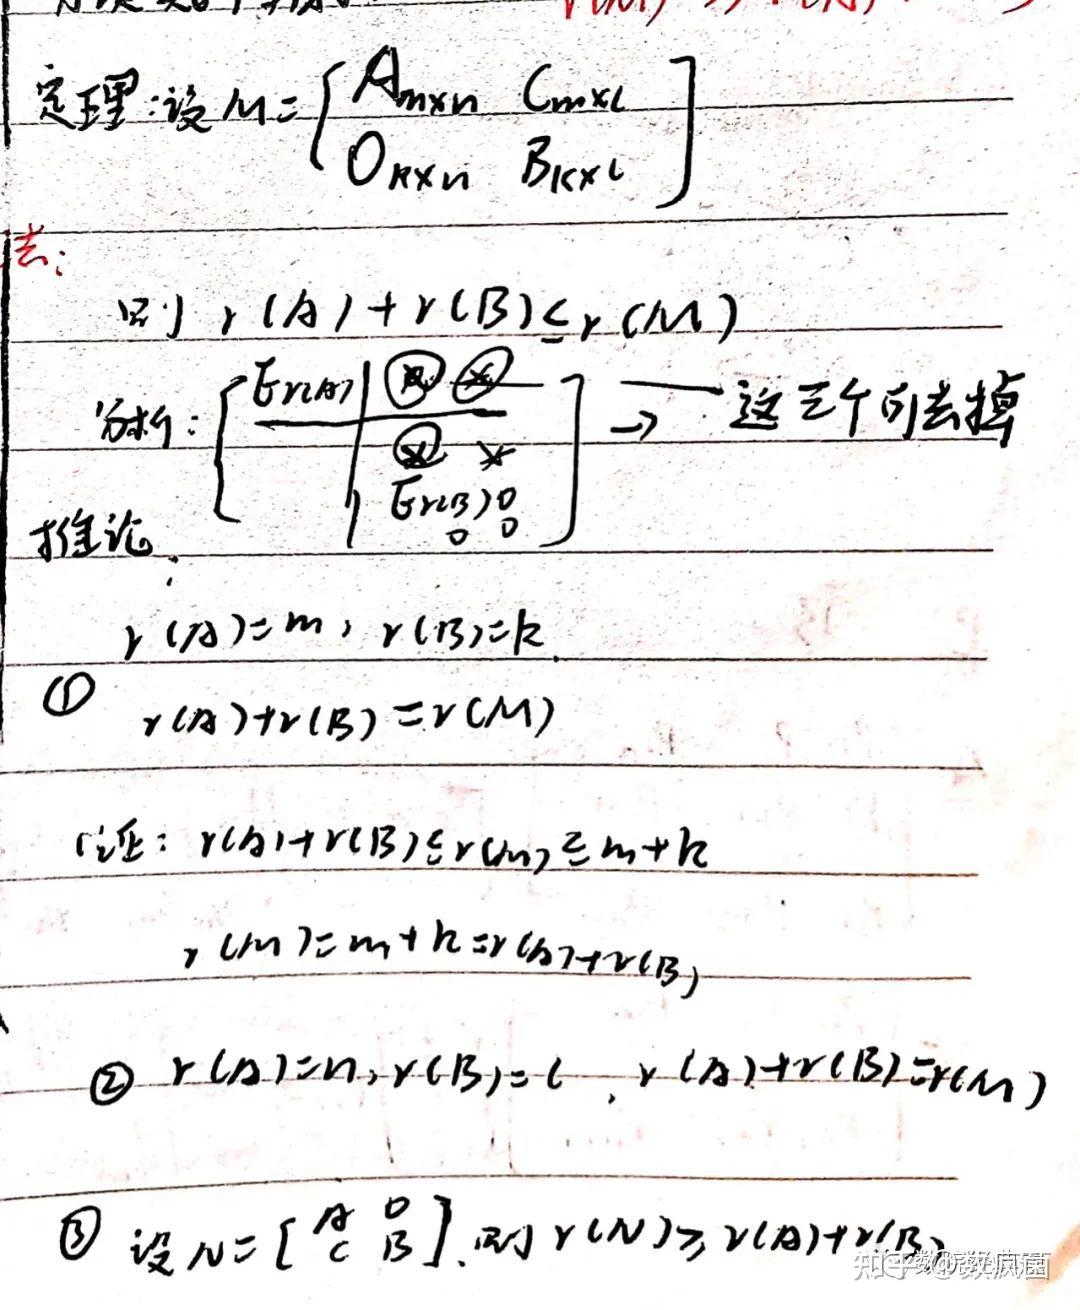 定理:设M=[A_{m×n} C_{m×l}
O_{k×n} B_{k×l}]
去:
则 r(A)+r(B)≤r(M)
分析: [E_{r(A)} × ×
× × → 这三个可去掉
E_{r(B)} 0
0 0]
推论:
r(A)=m, r(B)=k
① r(A)+r(B)=r(M)
证: r(A)+r(B)≤r(M)≤m+k
r(M)=m+k=r(A)+r(B)
② r(A)=n, r(B)=l, r(A)+r(B)=r(M)
③ 设N=[A 0
C B]. 则 r(N)≥r(A)+r(B)
知乎 @数疯菌